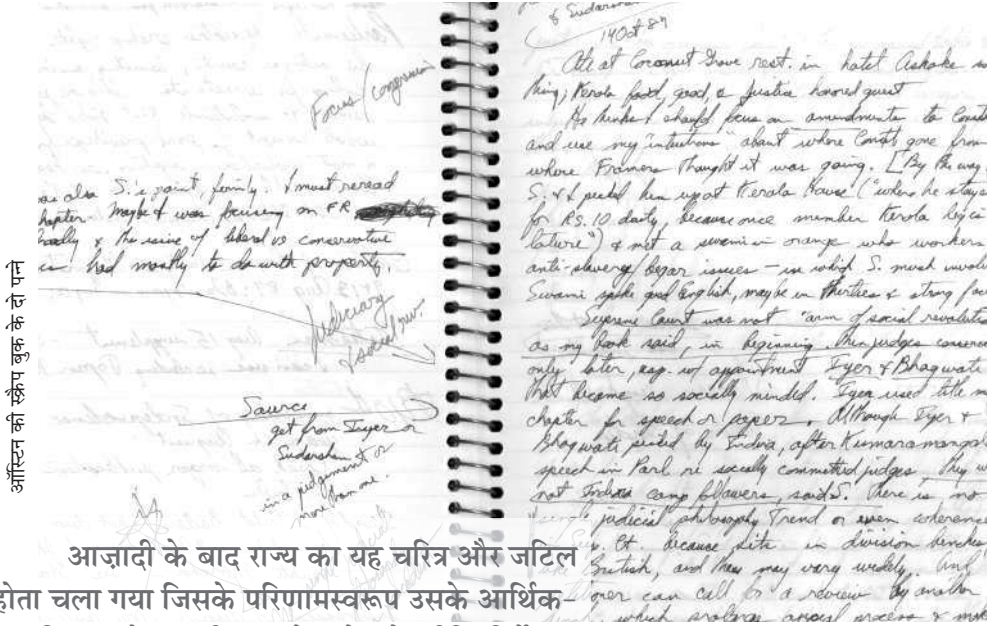 ऑस्टिन की स्क्रैप बुक के दो पन्ने
Focus/
was also S.'s point, firmly. I must reread
chapter. Maybe I was focusing on FR
& the issue of liberal vs conservative
had mostly to do with property.
Judiciary
& social rev.
Source
get from Iyer or
Sudarshan or
in a judgement or
more from me.
& Sudarshan
14 Oct 87
Ate at Coconut Grove rest. in hotel Ashoka
thing; Kerala food, good, a Justice honored guest
He thinks I should focus on amendments to Const
and use my "intuition" about where Const gone from
where Framers thought it was going. [By the way
S. & I picked him up at Kerala House ("where he stays
for RS. 10 daily, because once member Kerala legis
lature") & met a swami in orange who workers
anti-slavery/begar issues – in which S. much involv
Swami spoke good English, maybe in thirties & strong
Supreme Court was not "arm of social revolution
as my book said, in beginning. Then judges conserv
only later, esp. w/ appointment Iyer & Bhagwati
that became so socially minded. Iyer used title
chapter for speech or paper. Although Iyer &
Bhagwati picked by Indira, after Kumaramangal
speech in Parl re socially committed judges. They
not Indira camp followers, said S. There is no
"single judicial philosophy trend or even coherence
Sup. Ct because sits in division benches,
like British, and these may vary widely. And
can call for a review by another
which prolongs process & more
आज़ादी के बाद राज्य का यह चरित्र और जटिल
होता चला गया जिसके परिणामस्वरूप उसके आर्थिक–